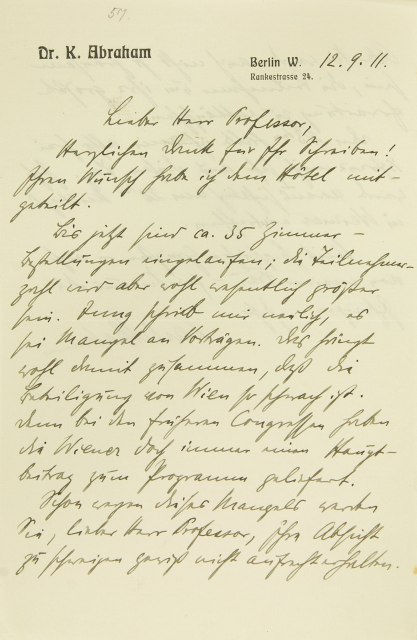 57.
Dr. K. Abraham
Berlin W. 12.9.11.
Rankestrasse 24.
Lieber Herr Professor,
Herzlichen Dank für Ihr Schreiben!
Ihren Wunsch habe ich dem Hôtel mit-
geteilt.
Bis jetzt sind ca. 35 Zimmer-
bestellungen eingelaufen; die Teilnehmer-
zahl wird aber wohl wesentlich größer
sein. Jung schrieb mir neulich, es
sei Mangel an Vorträgen. Das hängt
wohl damit zusammen, daß die
Beteiligung von Wien so schwach ist.
Denn bei den früheren Congressen haben
die Wiener doch immer einen Haupt-
beitrag zum Programm geliefert.
Schon wegen dieses Mangels werden
Sie, lieber Herr Professor, Ihre Absicht
zu schweigen gewiß nicht aufrecht erhalten.